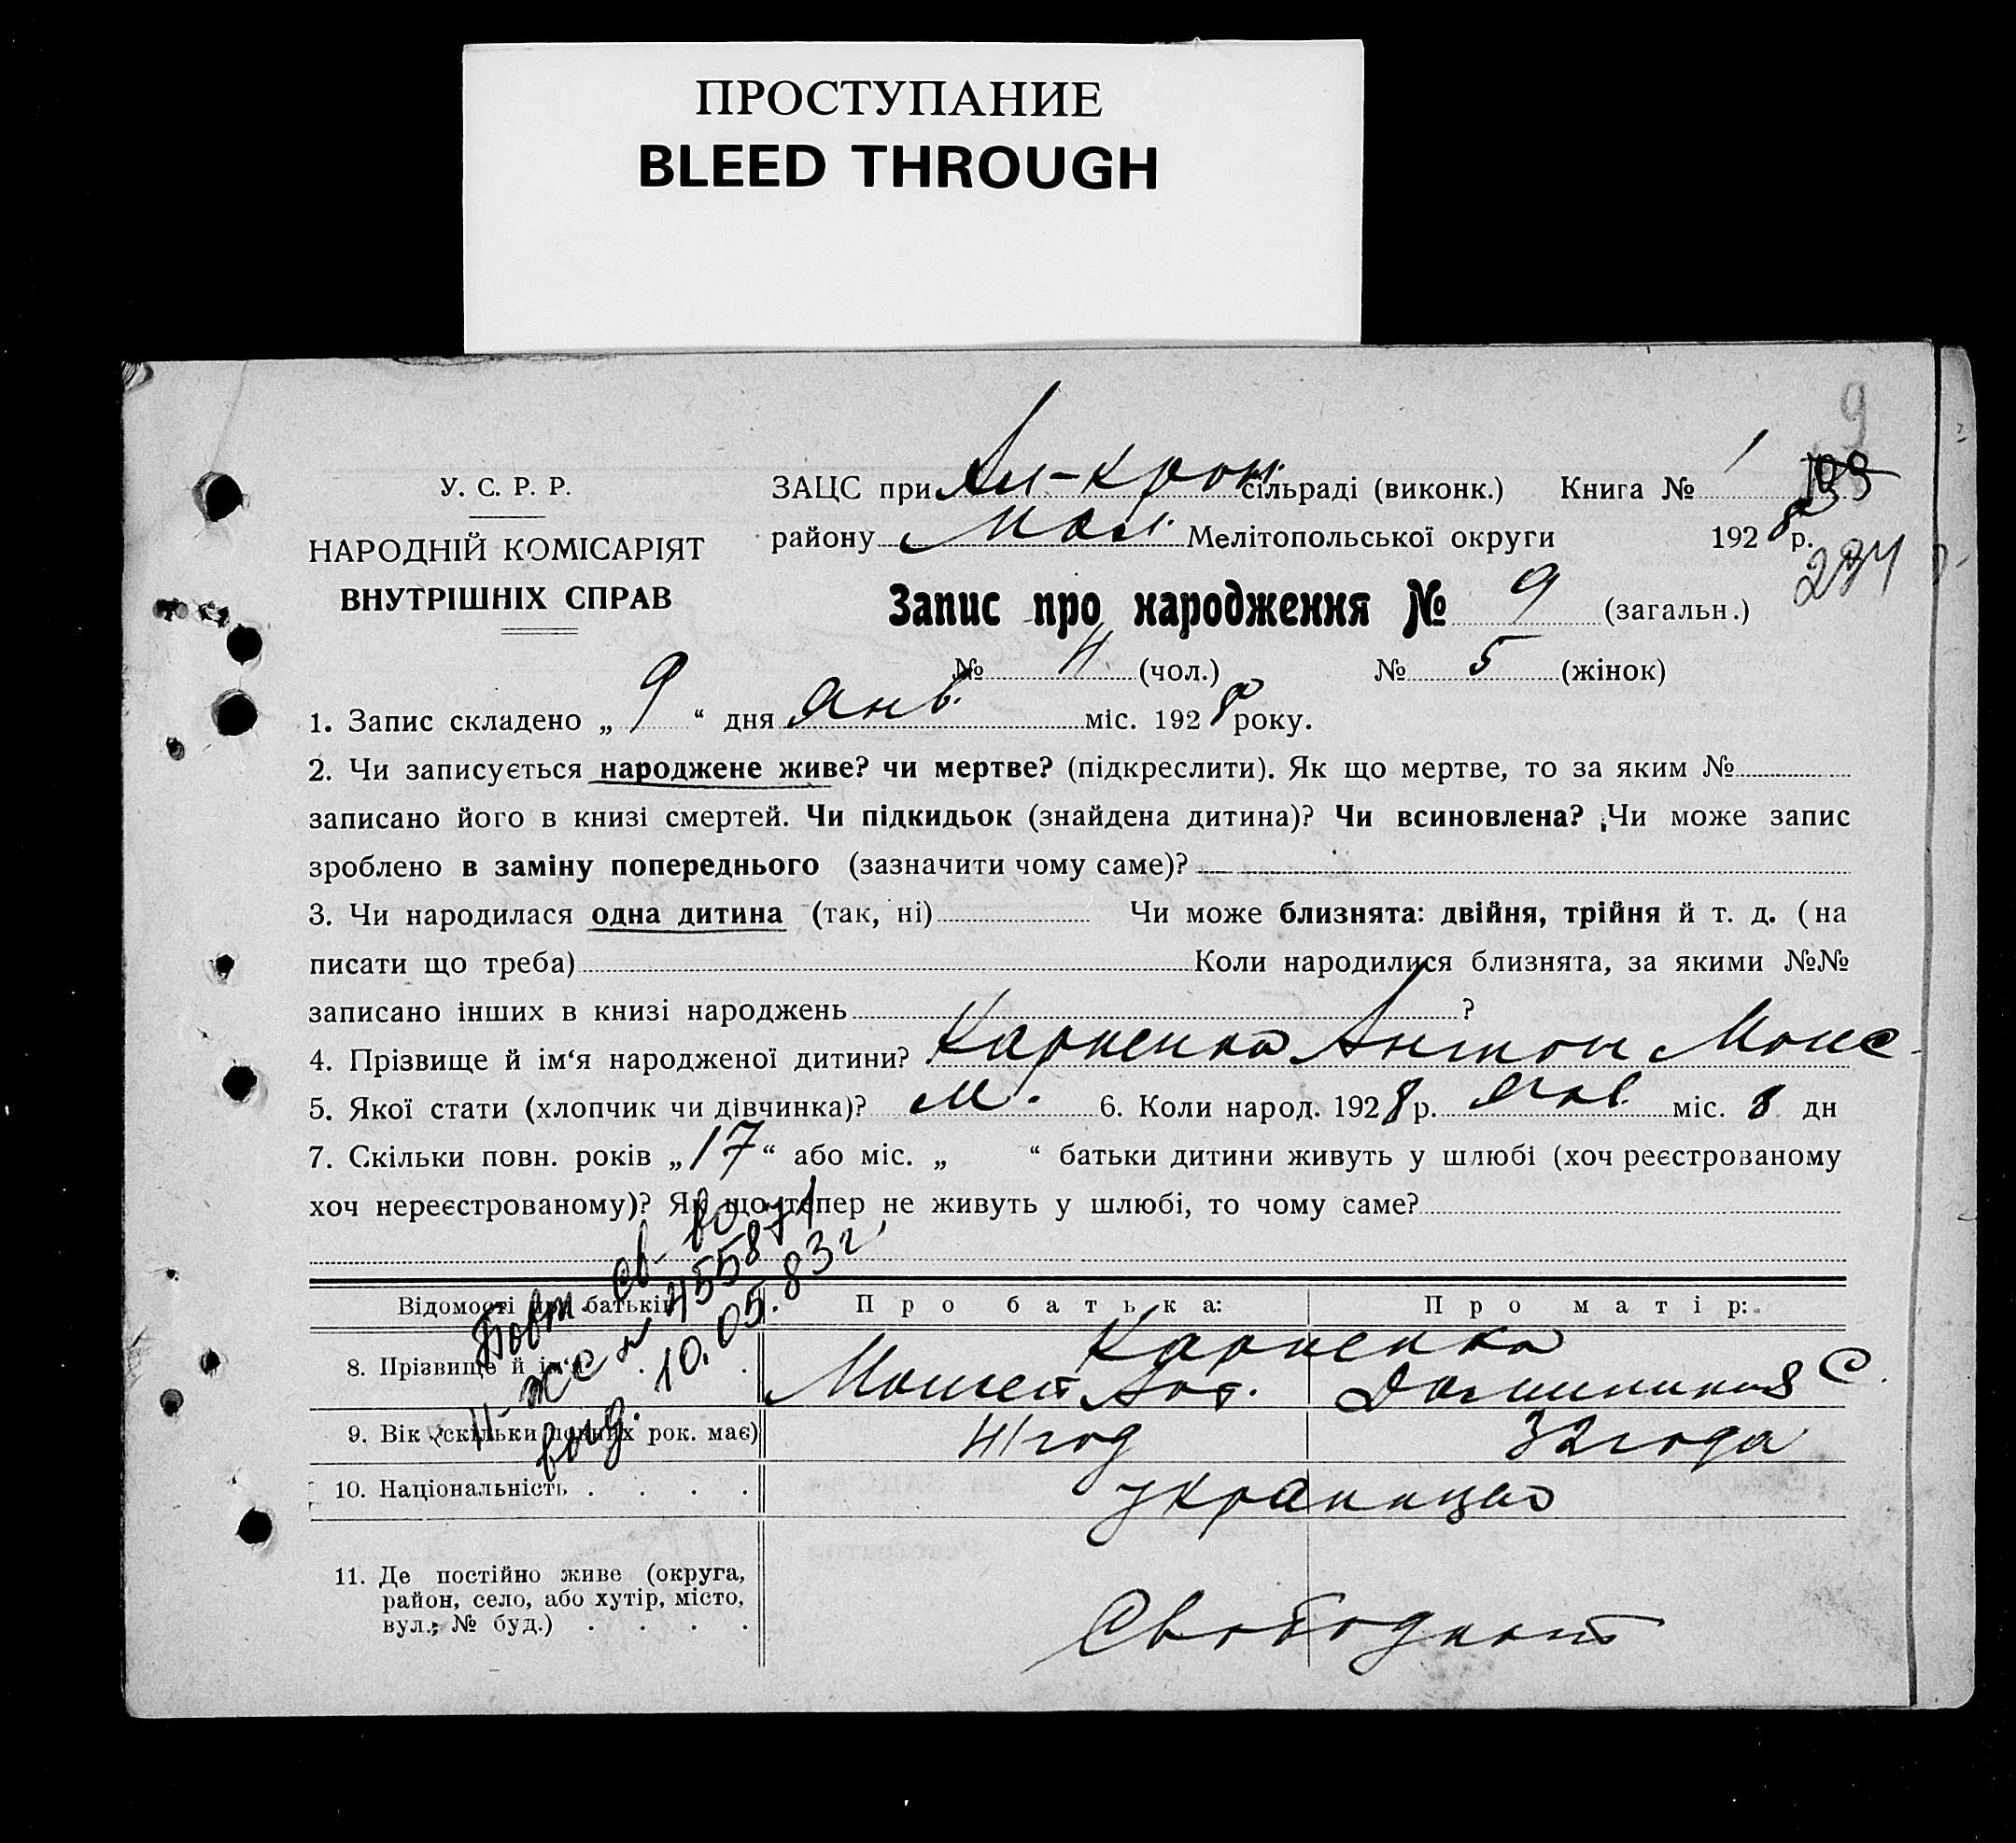 ПРОСТУПАНИЕ
BLEED THROUGH
9
У. С. Р. Р.
НАРОДНІЙ КОМІСАРІЯТ
ВНУТРІШНІХ СПРАВ
ЗАЦС при сільраді (виконк.) Книга № 1
району Мел. Мелітопольської округи 1928 р.
Запис про народження № 9 (загальн.)
№ 4 (чол.) № 5 (жінок)
1. Запис складено „ 9 “ дня Янв. міс. 1928 року.
2. Чи записується народжене живе? чи мертве? (підкреслити). Як що мертве, то за яким №
записано його в книзі смертей. Чи підкидьок (знайдена дитина)? Чи всиновлена? Чи може запис
зроблено в заміну попереднього (зазначити чому саме)?
3. Чи народилася одна дитина (так, ні) Чи може близнята: двійня, трійня й т. д. (на
писати що треба) Коли народилися близнята, за якими №№
записано інших в книзі народжень ?
4. Прізвище й ім‘я народженої дитини? Карпенко Антон
5. Якої стати (хлопчик чи дівчинка)? м. 6. Коли народ. 1928 р. Янв. міс. 8 дн
7. Скільки повн. років „ 17 “ або міс. „ “ батьки дитини живуть у шлюбі (хоч реєстрованому
хоч нереєстрованому)? Як що тепер не живуть у шлюбі, то чому саме?
Повт. св.
№ 455871
10.05.83 г.
Відомості про батьків Про батька: Про матір:
8. Прізвище й ім‘я . . Карпенко
9. Вік (скільки повних рок. має) 41 год 32 года
10. Національність . . . . украинцы
11. Де постійно живе (округа,
район, село, або хутір, місто,
вул., № буд.) . . . .